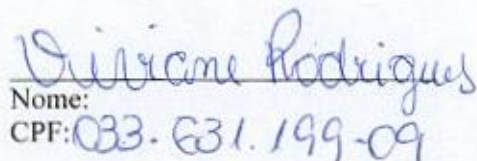 Viviane Rodrigues
Nome:
CPF: 033.631.199-09